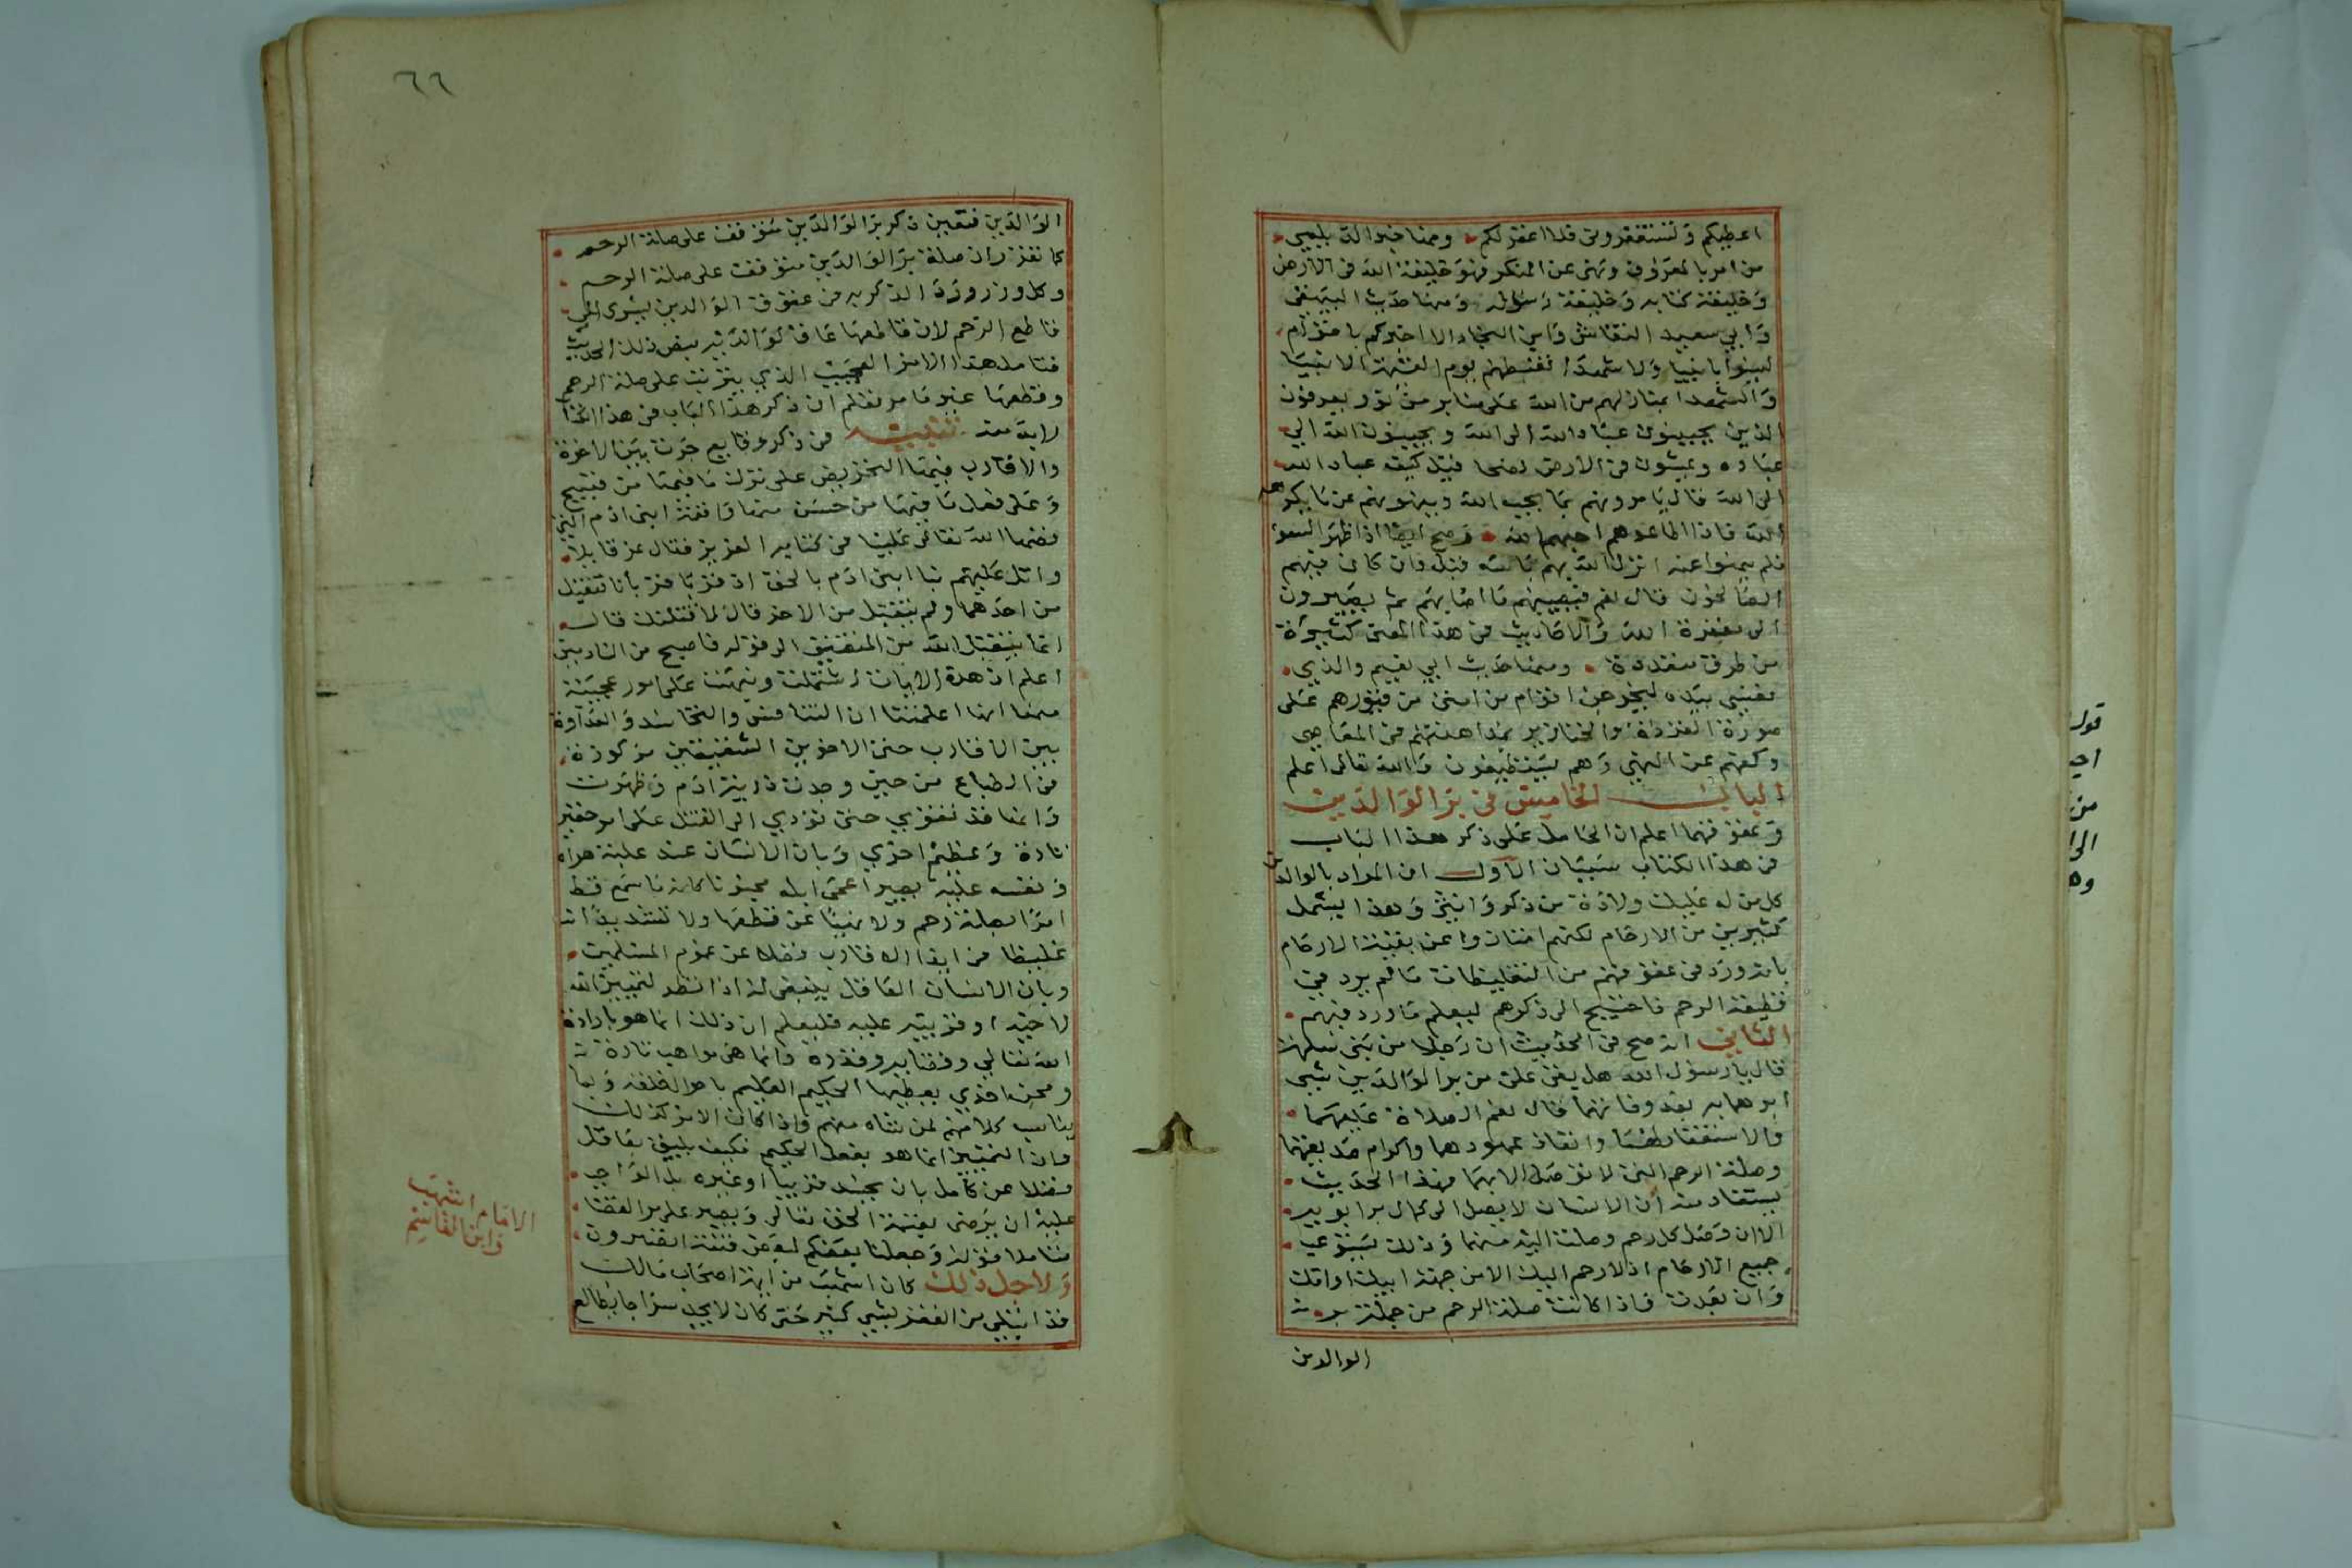 اعطيكم وتستغفروني فلا اغفر لكم ومنا خبر الديلمي
من امر بالمعروف ونهى عن المنكر فهو خليفة الله في الارض
وخليفة كتابه وخليفة رسوله ومنها حديث البيهقي
وابي سعيد النقاش وابن النجار الا اخبركم باقوام
ليسوا بانبيا ولا شهدا تغبطهم يوم القيمة الانبيا
والشهدا بمنازلهم من الله على منابر من نور يعرفون
الذين يحببون عباد الله الى الله ويحببون الله الي
عباده ويمشون في الارض نصحا قيل كيف عباد الله
الى الله قال يامرونهم بما يحب الله وينهونهم عن ما يكره
الله فاذا اطاعوهم احبهم الله وصح ايضا اذا ظهر السوء
فلم ينهوا عنه انزل الله بهم باسه قيل وان كان فيهم
الصالحون قال نعم فيصيبهم ما اصابهم ثم يصيرون
الى مغفرة الله والاحاديث في هذا المعنى كثيرة
من طرق متعددة ومنها حديث ابي نعيم والذي
نفسي بيده ليخرجن اقوام من امتي من قبورهم على
صورة القردة والخنازير بمداهنتهم في المعاصي
وكفهم عن النهي وهم يستطيعون والله تعالى اعلم
الباب الخامس في بر الوالدين
وعقوقهما اعلم ان الحامل على ذكر هذا الباب
في هذا الكتاب سببان الاول ان المراد بالوالدين
كل من له عليك ولادة من ذكر وانثى وهذا يشمل
كثيرين من الارحام لكنهم امتازوا عن بقية الارحام
بانه ورد في عقوقهم من التغليظات ما لم يرد في
قطيعة الرحم فاحتيج الى ذكرهم ليعلم ما ورد فيهم
الثاني انه صح في الحديث ان رجلا من بني سلمة
قال يا رسول الله هل بقي على من بر الوالدين شي
ابرهما به بعد وفاتهما قال نعم الصلاة عليهما
والاستغفار لهما وانفاذ عهودهما واكرام صديقهما
وصلة الرحم التي لا توصل الا بهما فهذا الحديث
يستفاد منه ان الانسان لا يصل الى كمال بر ابويه
الا ان وصل كل رحم وصلت اليه منهما وذلك يستوعب
جميع الارحام اذ لا رحم اليك الا من جهة ابيك او امك
وان بعدت فاذا كانت صلة الرحم من جملة بر
الوالدين
٦٦
الوالدين فتعين ذكر بر الوالدين متوقف على صلة الرحم
كما تقرر ان صلة بر الوالدين متوقفت على صلة الرحم
وكل وزر ورد الذكر به من عقوق الوالدين يسري الى
قاطع الرحم لان قاطعها عاق لوالديه بنص ذلك الحديث
فتامل هذا الامر العجيب الذي يترتب على صلة الرحم
وقطعها غير ما مر تعلم ان ذكر هذا الباب في هذا الكتاب
لابد منه تنبيه في ذكر وقايع جرت بين الاعزة
والاقارب فيها التحريض على ترك ما فيها من قبيح
وعلى فعل ما فيها من حسن منها واقعة ابني ادم التي
قصها الله تعالى علينا في كتابه العزيز فقال عز قايلا
واتل عليهم نبا ابني ادم بالحق اذ قربا قربانا فتقبل
من احدهما ولم يتقبل من الاخر قال لاقتلنك قال
انما يتقبل الله من المتقين الى قوله فاصبح من النادمين
اعلم ان هذه الايات اشتملت ونبهت على امور عجيبة
منها انها اعلمتنا ان التنافس والتحاسد والعداوة
بين الاقارب حتى الاخوين الشقيقين مركوزة
في الطباع من حين وجدت ذرية ادم وظهرت
وانها قد تقوي حتى تودي الى القتل على امر حقير
تارة وعظيم اخري وبان الانسان عند غلبة هواه
ونفسه عليه يصير اعمى ابله مجنونا كانه ما سمع قط
امرا بصلة رحم ولا نهيا عن قطعها ولا تشديدا
تغليظا في ايذا الاقارب فضلا عن عموم المسلمين
وبان الانسان العاقل ينبغي له اذا نظر لتمييز الله
لاخيه او قريبه عليه فليعلم ان ذلك انما هو بارادة
الله تعالي وقضايه وقدره وانما هي مواهب تارة
ومحن اخري يعطيها الحكيم العليم باحوال خلقه وبما
يناسب كلا منهم لمن شاه منهم واذا كان الامر كذلك
وان التمييز انما هو بفعل الحكيم فكيف يليق بعاقل
فضلا عن كامل بان يحسد قريبا او غيره بل الواجب
عليه ان يرضى بقسمة الحق تعالى ويصبر على مر القضا
متاملا قوله وجعلنا بعضكم لبعض فتنة اتصبرون
ولاجل ذلك كان اشهب من اجل اصحاب مالك
قد ابتلي من الفقر بشي كثير حتى كان لا يجد
الامام اشهب
وابن القاسم